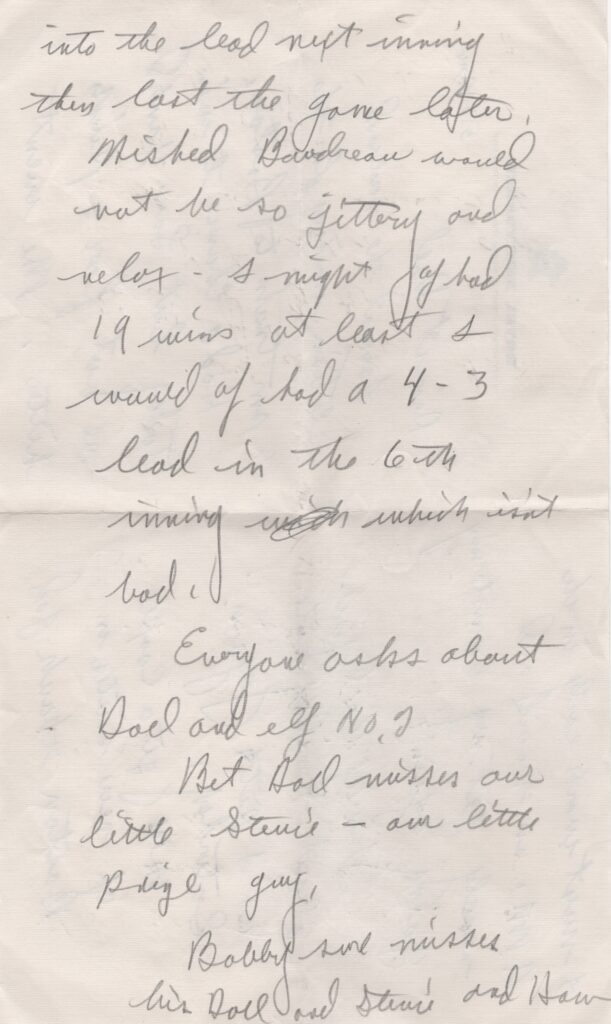 into the lead next inning
then lost the game later.
Wished Boudreau would
not be so jittery and
relax - I might of had
19 wins at least I
would of had a 4-3
lead in the 6th
inning which isn't
bad.
Everyone asks about
Doll and elf No. 2
Bet Doll misses our
little Stevie - our little
prize guy,
Bobby sure misses
his Doll and Stevie and How